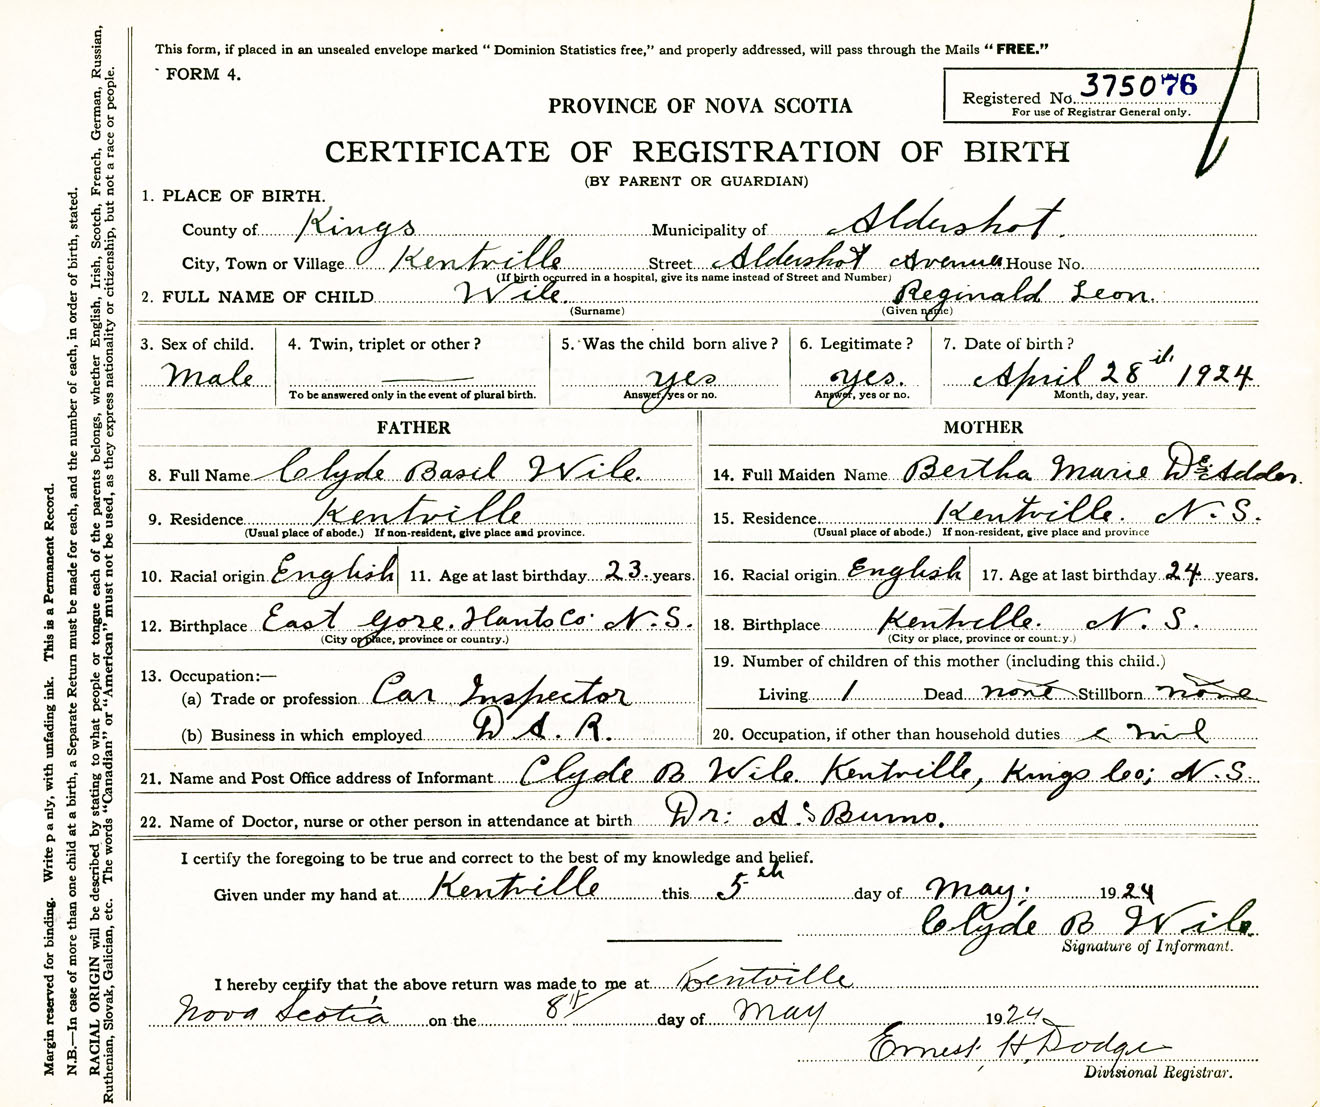 This form, if placed in an unsealed envelope marked "Dominion Statistics free," and properly addressed, will pass through the Mails "FREE."
FORM 4.
Registered No. 375076
For use of Registrar General only.
PROVINCE OF NOVA SCOTIA
CERTIFICATE OF REGISTRATION OF BIRTH
(BY PARENT OR GUARDIAN)
1. PLACE OF BIRTH.
County of Kings Municipality of Aldershot.
City, Town or Village Kentville Street Aldershot Avenue House No.
(If birth occurred in a hospital, give its name instead of Street and Number)
2. FULL NAME OF CHILD Wile. Reginald Leon.
(Surname) (Given name)
3. Sex of child. 4. Twin, triplet or other? 5. Was the child born alive? 6. Legitimate? 7. Date of birth?
Male yes yes. April 28th 1924
To be answered only in the event of plural birth. Answer, yes or no. Answer, yes or no. Month, day, year.
FATHER MOTHER
8. Full Name Clyde Basil Wile. 14. Full Maiden Name Bertha Marie DeAdder.
9. Residence Kentville 15. Residence Kentville. N. S.
(Usual place of abode.) If non-resident, give place and province. (Usual place of abode.) If non-resident, give place and province
10. Racial origin English 11. Age at last birthday 23 years. 16. Racial origin English 17. Age at last birthday 24 years.
12. Birthplace East Gore. Hants Co. N. S. 18. Birthplace Kentville. N. S.
(City or place, province or country.) (City or place, province or country.)
13. Occupation:— 19. Number of children of this mother (including this child.)
(a) Trade or profession Car Inspector Living 1 Dead none Stillborn none
(b) Business in which employed D. A. R. 20. Occupation, if other than household duties nil
21. Name and Post Office address of Informant Clyde B Wile Kentville, Kings Co; N. S.
22. Name of Doctor, nurse or other person in attendance at birth Dr: A. S Burns.
I certify the foregoing to be true and correct to the best of my knowledge and belief.
Given under my hand at Kentville this 5th day of May. 1924
Clyde B Wile.
Signature of Informant.
I hereby certify that the above return was made to me at Kentville
Nova Scotia on the 8th day of May 1924
Ernest H. Dodge
Divisional Registrar.
Margin reserved for binding. Write p a nly, with unfading ink. This is a Permanent Record.
N.B.—In case of more than one child at a birth, a Separate Return must be made for each, and the number of each, in order of birth, stated.
RACIAL ORIGIN will be described by stating to what people or tongue each of the parents belongs, whether English, Irish, Scotch, French, German, Russian,
Ruthenian, Slovak, Galician, etc. The words "Canadian" or "American" must not be used, as they express nationality or citizenship, but not a race or people.